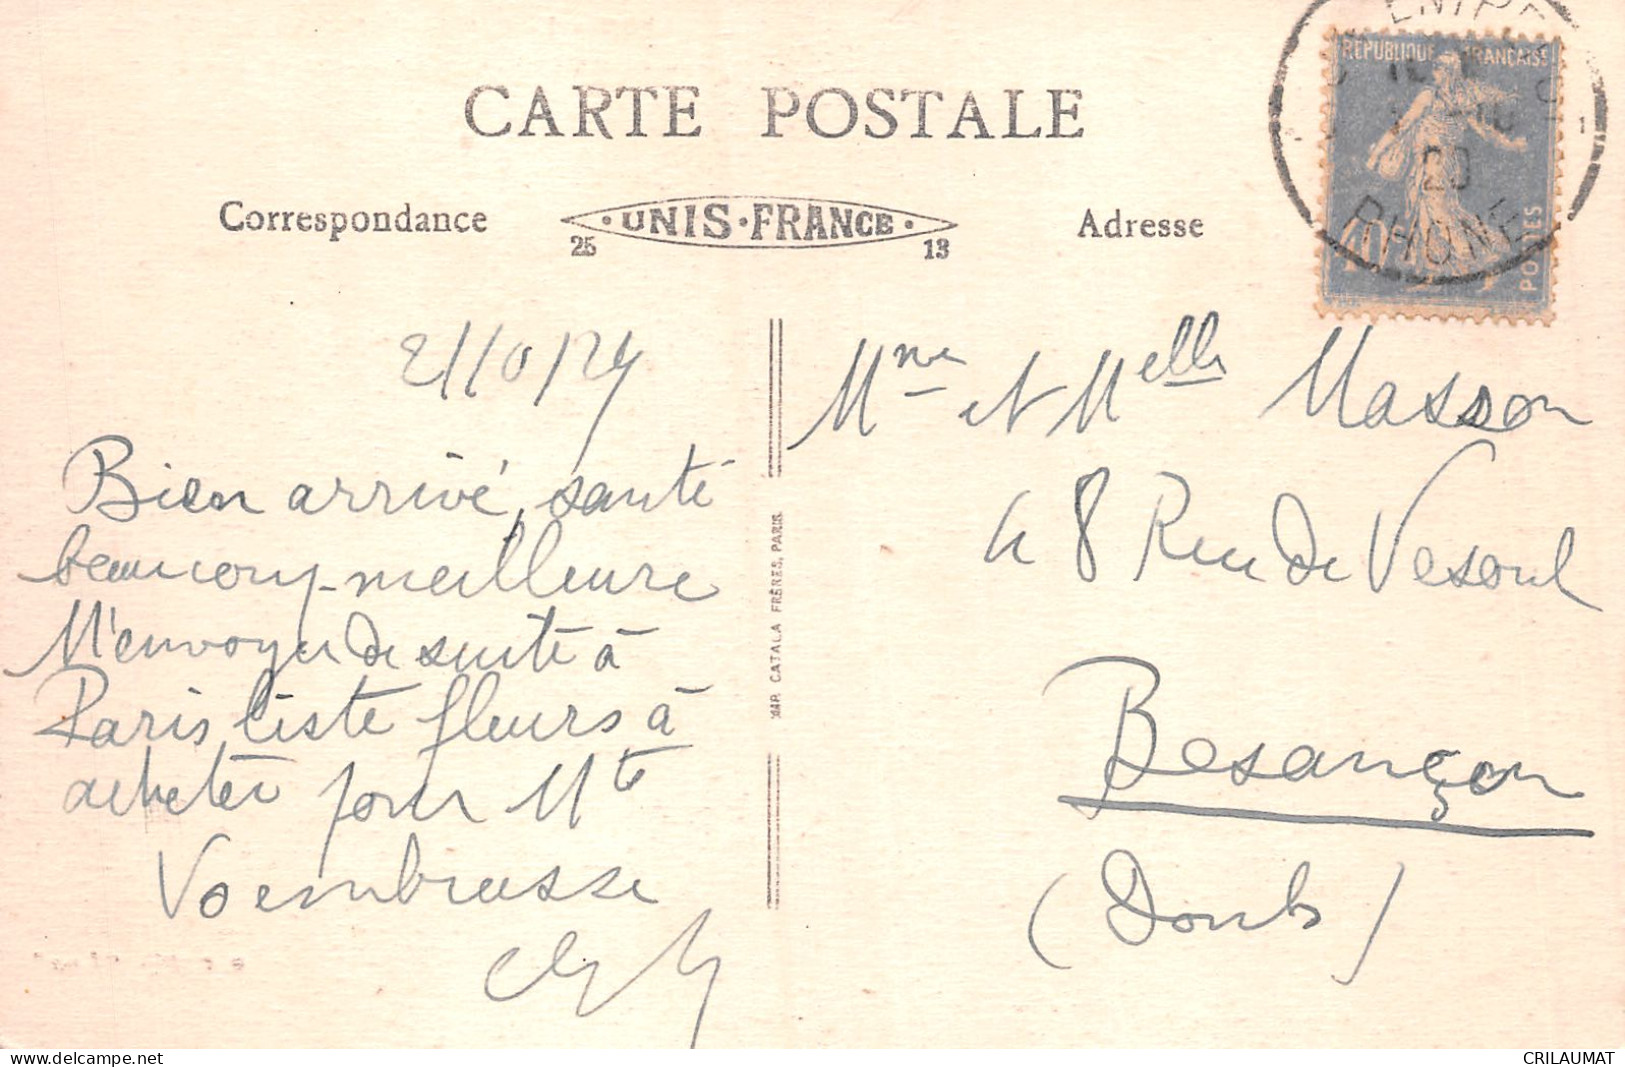 CARTE POSTALE
Correspondance
·UNIS·FRANCE·
25 13
Adresse
REPUBLIQUE FRANÇAISE
POSTES
40
20
RHONE
Bien arrivé, santé
beaucoup meilleure
M'envoyer de suite à
Paris, liste fleurs à
acheter pour Mte
Vs embrasse
Mme et Melle Masson
48 Rue de Vesoul
Besançon
(Doubs)
CATALA FRÈRES, PARIS
delcampe.net
CRILAUMAT